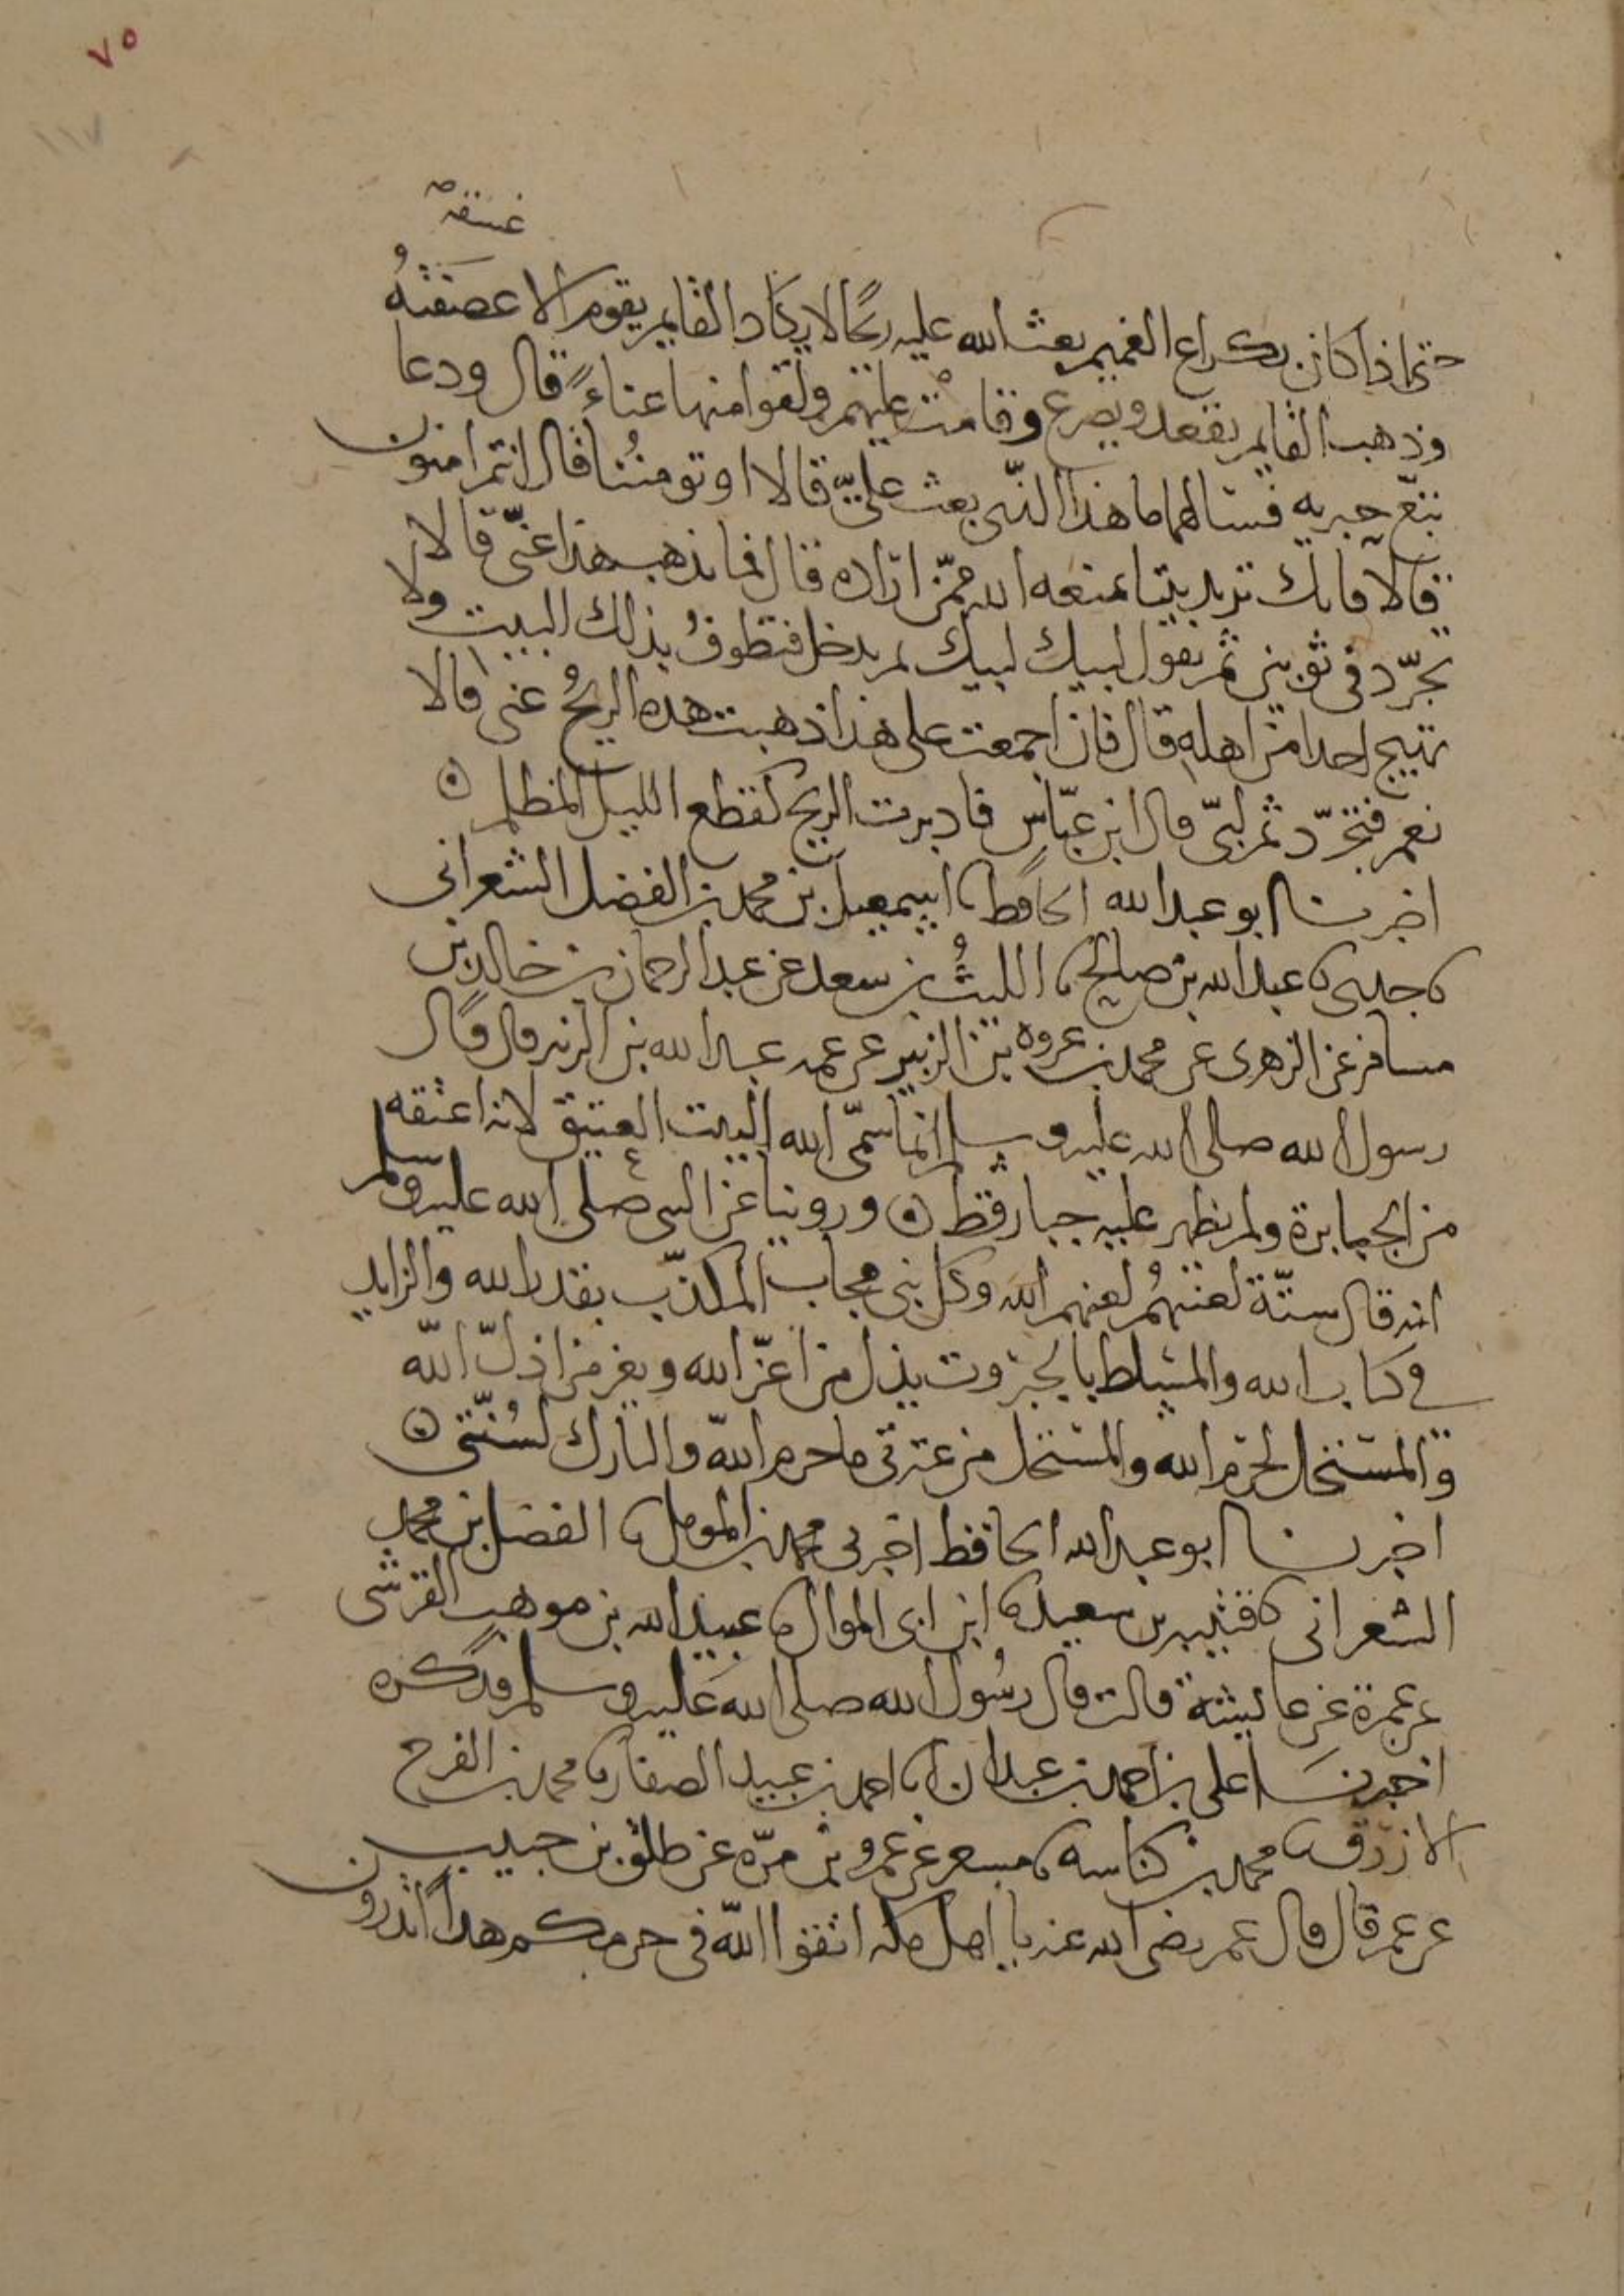 ٧٥
١١٧
عنقه
حتى اذا كان بكراع الغميم بعث الله عليه ريحا لا يكاد القايم يقوم الا عصفته
وذهب القايم يقعد ويصرع وقامت عليهم ولقوا منها عناء قال ودعا
تبع حبريه فسالهما ما هذا الذى بعث علىّ قالا او تومننا قال انتم امنون
قالا فانك تريد بيتا يمنعه الله ممن اراده قال فما يذهب هذا عنى قالا
تجرّد فى ثوبين ثم تقول لبيك لبيك ثم تدخل فتطوف بذلك البيت ولا
تهيج احدا من اهله قال فان اجمعت على هذا ذهبت هذه الريح عنى قالا
نعم فتجرّد ثم لبّى قال ابن عبّاس فادبرت الريح كقطع الليل المظلم
اخبرنا ابو عبد الله الحافظ اسمعيل بن محمد بن الفضل الشعرانى
جدى عبد الله بن صالح الليث بن سعد عن عبد الرحمان بن خالد بن
مسافر عن الزهرى عن محمد بن عروه بن الزبير عن عمه عبد الله بن الزبير قال قال
رسول الله صلى الله عليه وسلم انما سمّى الله البيت العتيق لانه اعتقه
من الجبابرة ولم يظهر عليه جبار قط وروينا عن النبى صلى الله عليه وسلم
انه قال ستّة لعنتهم لعنهم الله وكل نبى مجاب المكذّب بقدر الله والزايد
فى كتاب الله والمتسلط بالجبروت يذل من اعزّ الله ويعز من اذلّ الله
والمستحل لحرم الله والمستحل من عترتى ما حرم الله والتارك لسُنّتى
اخبرنا ابو عبد الله الحافظ اخبرنى محمد بن المومل الفضل بن محمد
الشعرانى قتيبه بن سعيد ابن ابى الموال عبيد الله بن موهب القرشى
عن عمرة عن عايشة قالت قال رسُول الله صلى الله عليه وسلم فذكره
اخبرنا على بن احمد بن عبدان احمد بن عبيد الصفار محمد بن الفرج
الازرق محمد بن كناسه مسعر عن عمرو بن مرّه عن طلق بن حبيب
عن عمر قال قال عمر رضى الله عنه يا اهل مكه اتقوا الله فى حرمكم هذا اتدرون